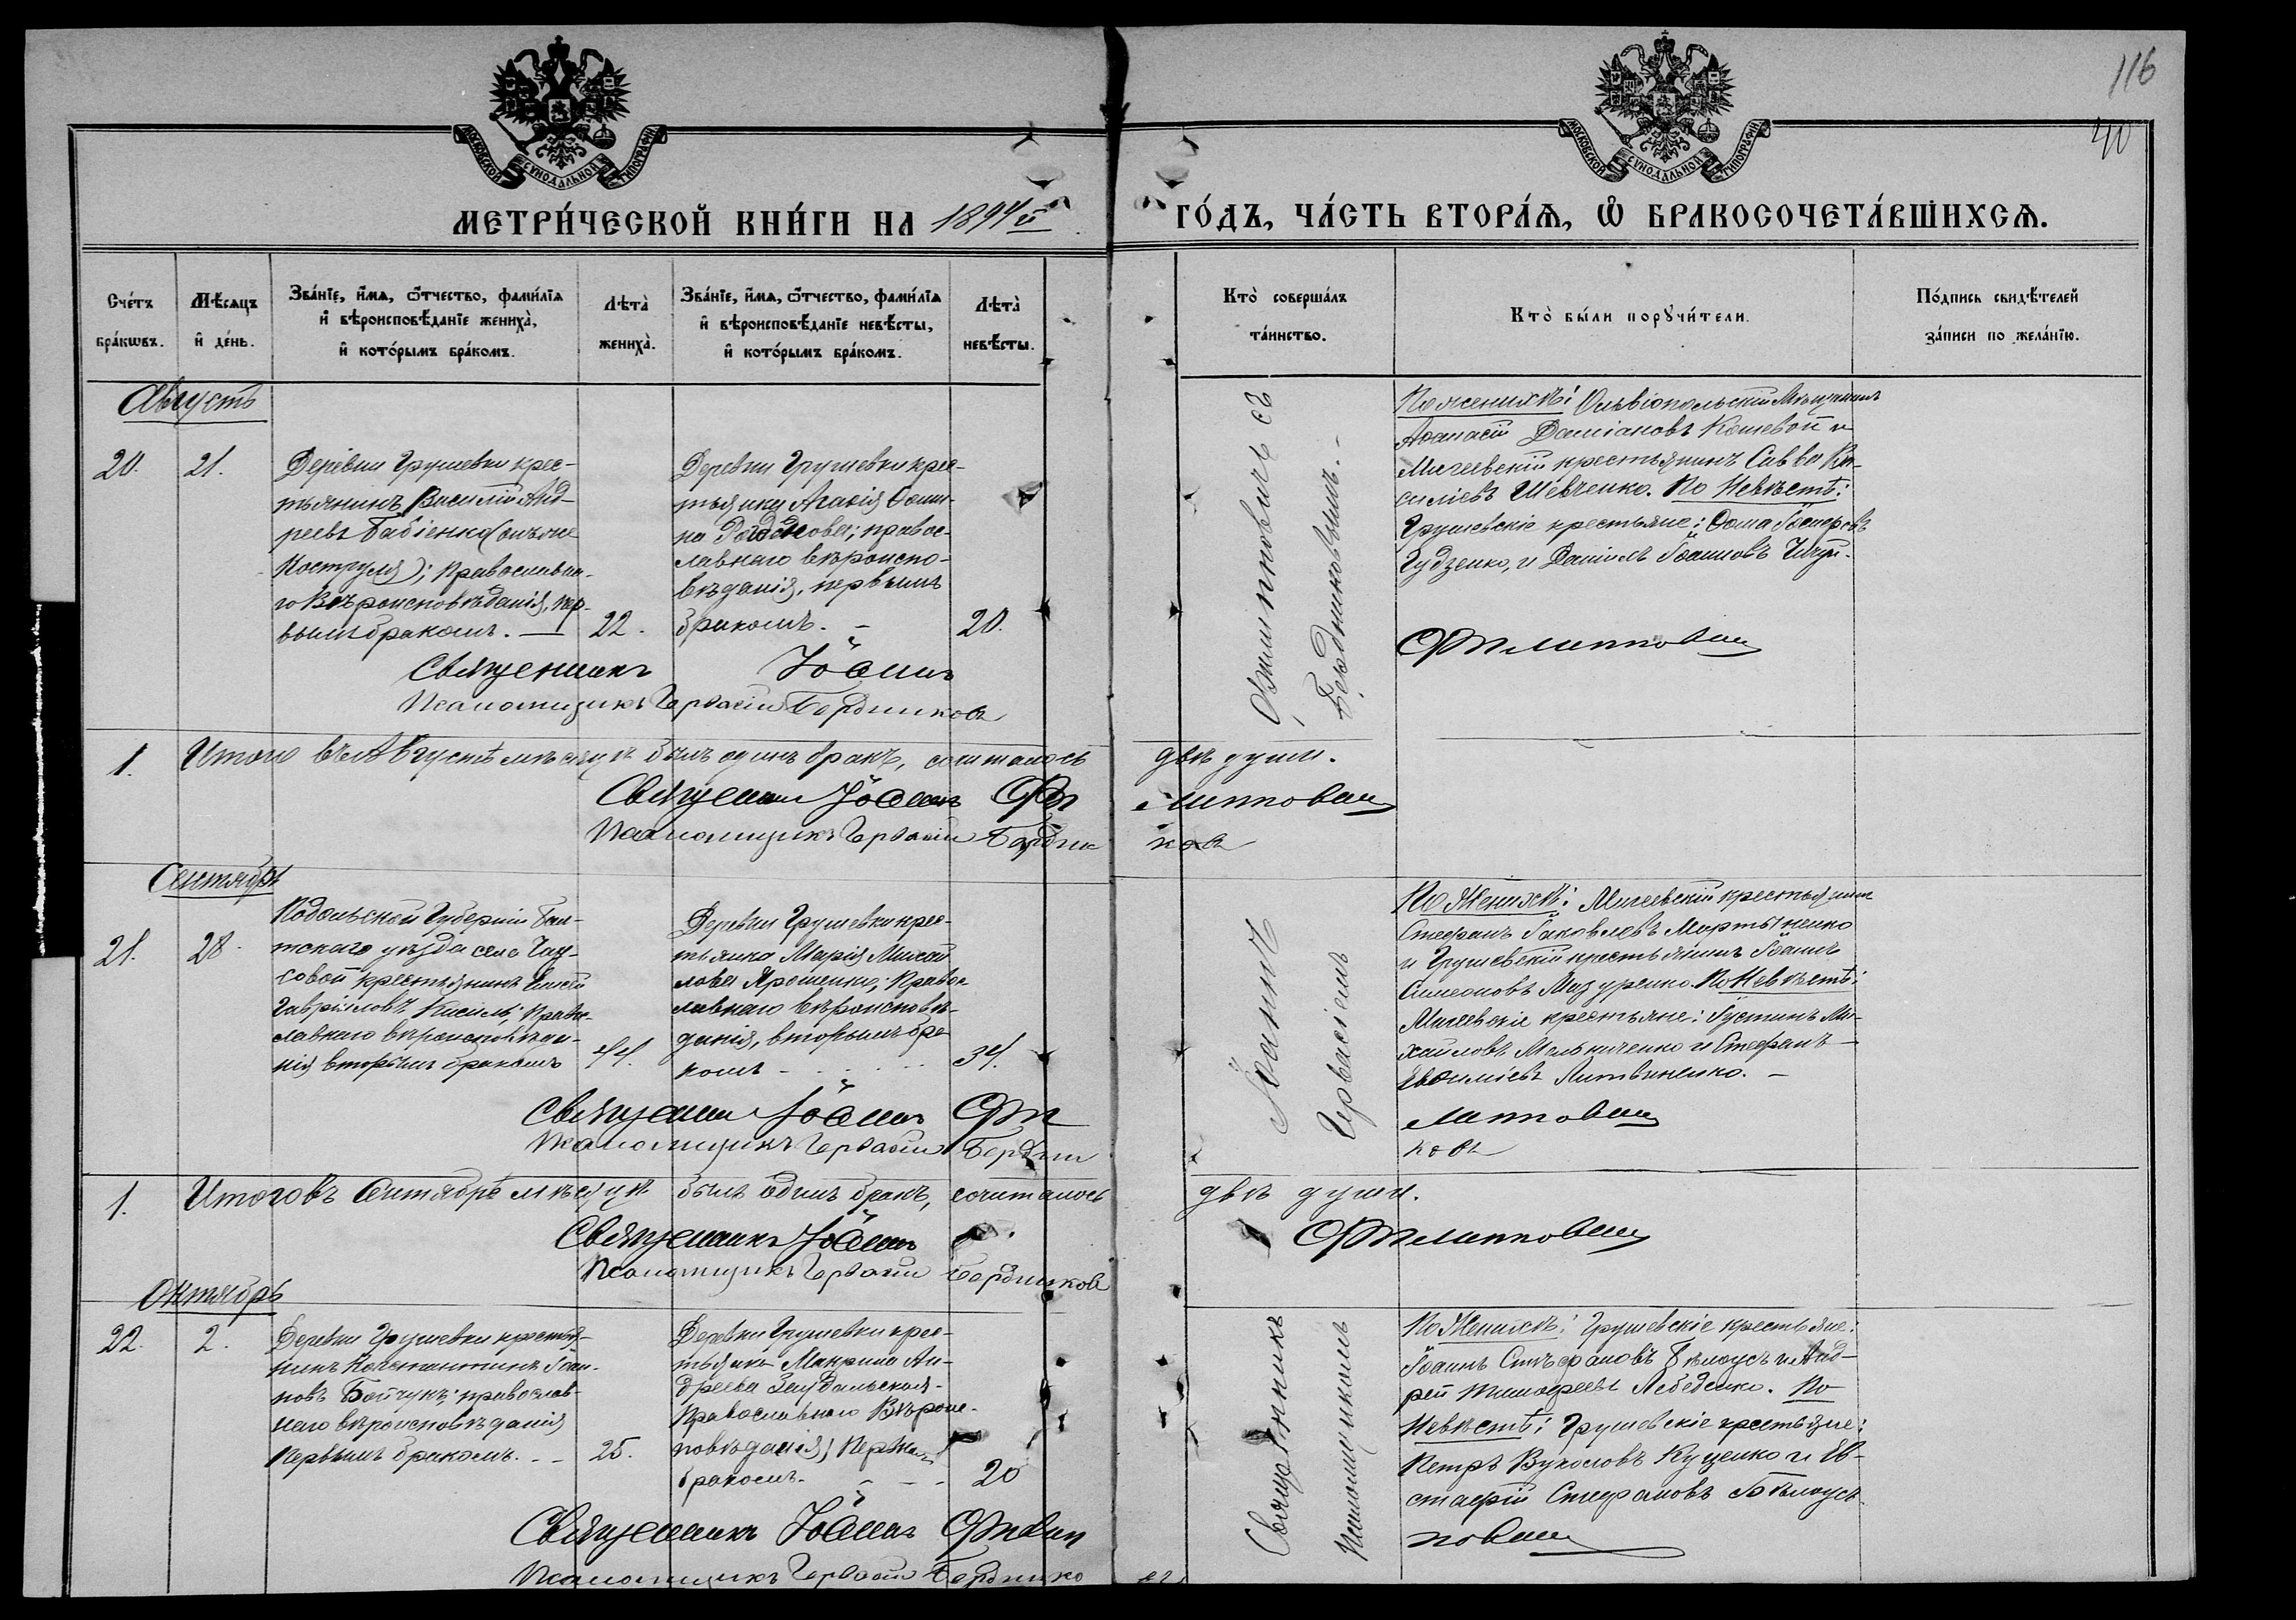 116
40
МОСКОВСКОЙ СУНОДАЛЬНОЙ ТИПОГРАФІИ
МОСКОВСКОЙ СУНОДАЛЬНОЙ ТИПОГРАФІИ
МЕТРИ́ЧЕСКОЙ КНИ́ГИ НА 1894й
ГО́ДЪ, ЧА́СТЬ ВТОРА́Ѧ, Ѽ БРАКОСОЧЕТА́ВШИХСѦ.
Сче́тъ бра́кѡвъ.
Мѣ́сѧцъ и҆ де́нь.
Зва́нїе, и҆́мѧ, ѻ҆́тчество, фами́лїѧ
и҆ вѣроисповѣ́данїе жениха̀,
и҆ кото́рымъ бра́комъ.
Лѣта̀ жениха̀.
Зва́нїе, и҆́мѧ, ѻ҆́тчество, фами́лїѧ
и҆ вѣроисповѣ́данїе невѣ́сты,
и҆ кото́рымъ бра́комъ.
Лѣта̀ невѣ́сты.
Кто̀ соверша́лъ та́инство.
Кто̀ бы́ли порꙋчи́тели.
По́дпись свидѣ́телей за́писи по жела́нїю.
Августъ
20.
21.
Деревни Грушевки крес-
тьянинъ Василій Анд-
реевъ Бабіенко (онъ же
Коструля); Православна-
го Вѣроисповѣданія, пер-
вымъ бракомъ. —
22.
Деревни Грушевки крес-
тьянка Агафія Фоми-
на; правос-
лавнаго вѣроиспо-
вѣданія, первымъ
бракомъ. –
20.
Филипповичъ съ
Бердниковымъ. –
По женихѣ: Ольвіопольскій Мѣщанинъ
Афанасій Даміановъ Кошевой и
Мигеевскій крестьянинъ Савва Ва-
силіевъ Шевченко. По Невѣстѣ:
Грушевскіе крестьяне: Фома
Гудзенко, и Даніилъ Іоанновъ
Священникъ Іоаннъ Филипповичъ
Псаломщикъ Гервасій Бердниковъ
1.
Итого въ Августѣ мѣсяцѣ былъ одинъ бракъ, сочиталось двѣ души.
Священникъ Іоаннъ Филипповичъ
Псаломщикъ Гервасій Бердниковъ
Сентябрь
21.
28.
Подольской Губерніи Бал-
тскаго уѣзда села Чау-
совой крестьянинъ
Гавріиловъ Кисиль; Правос-
лавнаго вѣроисповѣда-
нія вторымъ бракомъ
44.
Деревни Грушевки крес-
тьянка Марія Михай-
лова Ярошенко; Правос-
лавнаго вѣроисповѣ-
данія, вторымъ бра-
комъ
34.
Іоаннъ
Гервасіемъ
По Женихѣ: Мигеевскій крестьянинъ
Стефанъ Іаковлевъ Мартыненко
и Грушевскій крестьянинъ Іоаннъ
Симеоновъ Мазуренко. По Невѣстѣ:
Мигеевскіе крестьяне: Іустинъ Ми-
хайловъ Мельниченко и Стефанъ
Евфиміевъ Литвиненко. –
Священникъ Іоаннъ Филипповичъ
Псаломщикъ Гервасій Бердниковъ
1.
Итого въ Сентябрѣ мѣсяцѣ былъ одинъ бракъ, сочиталось двѣ души.
Священникъ Іоаннъ Филипповичъ
Псаломщикъ Гервасій Бердниковъ
Октябрь
22.
2.
Деревни Грушевки крестья-
нинъ Константинъ Іоан-
новъ Бойчукъ; православ-
наго вѣроисповѣданія
первымъ бракомъ. – –
25.
Деревни Грушевки крес-
тьянка Макрина Ан-
дреева
Православнаго Вѣроис-
повѣданія, первымъ
бракомъ.
20
Священникъ
Псаломщикомъ
По Женихѣ: Грушевскіе крестьяне:
Іоаннъ Стефановъ Бѣлоусъ и Анд-
рей Тимофеевъ Лебеденко. По
Невѣстѣ: Грушевскіе крестьяне:
Петръ Вуколовъ Куценко и Ев-
стафій Стефановъ Бѣлоусъ.
Священникъ Іоаннъ Филипповичъ
Псаломщикъ Гервасій Бердниковъ